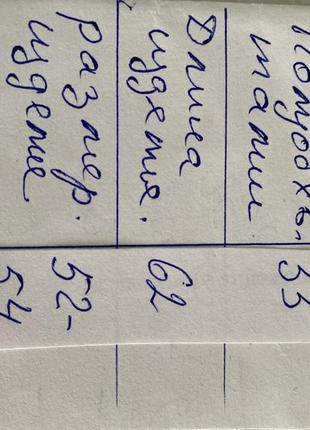 Полуобхв.
талии
Длина
изделия.
62
размер.
изделия
52-
54